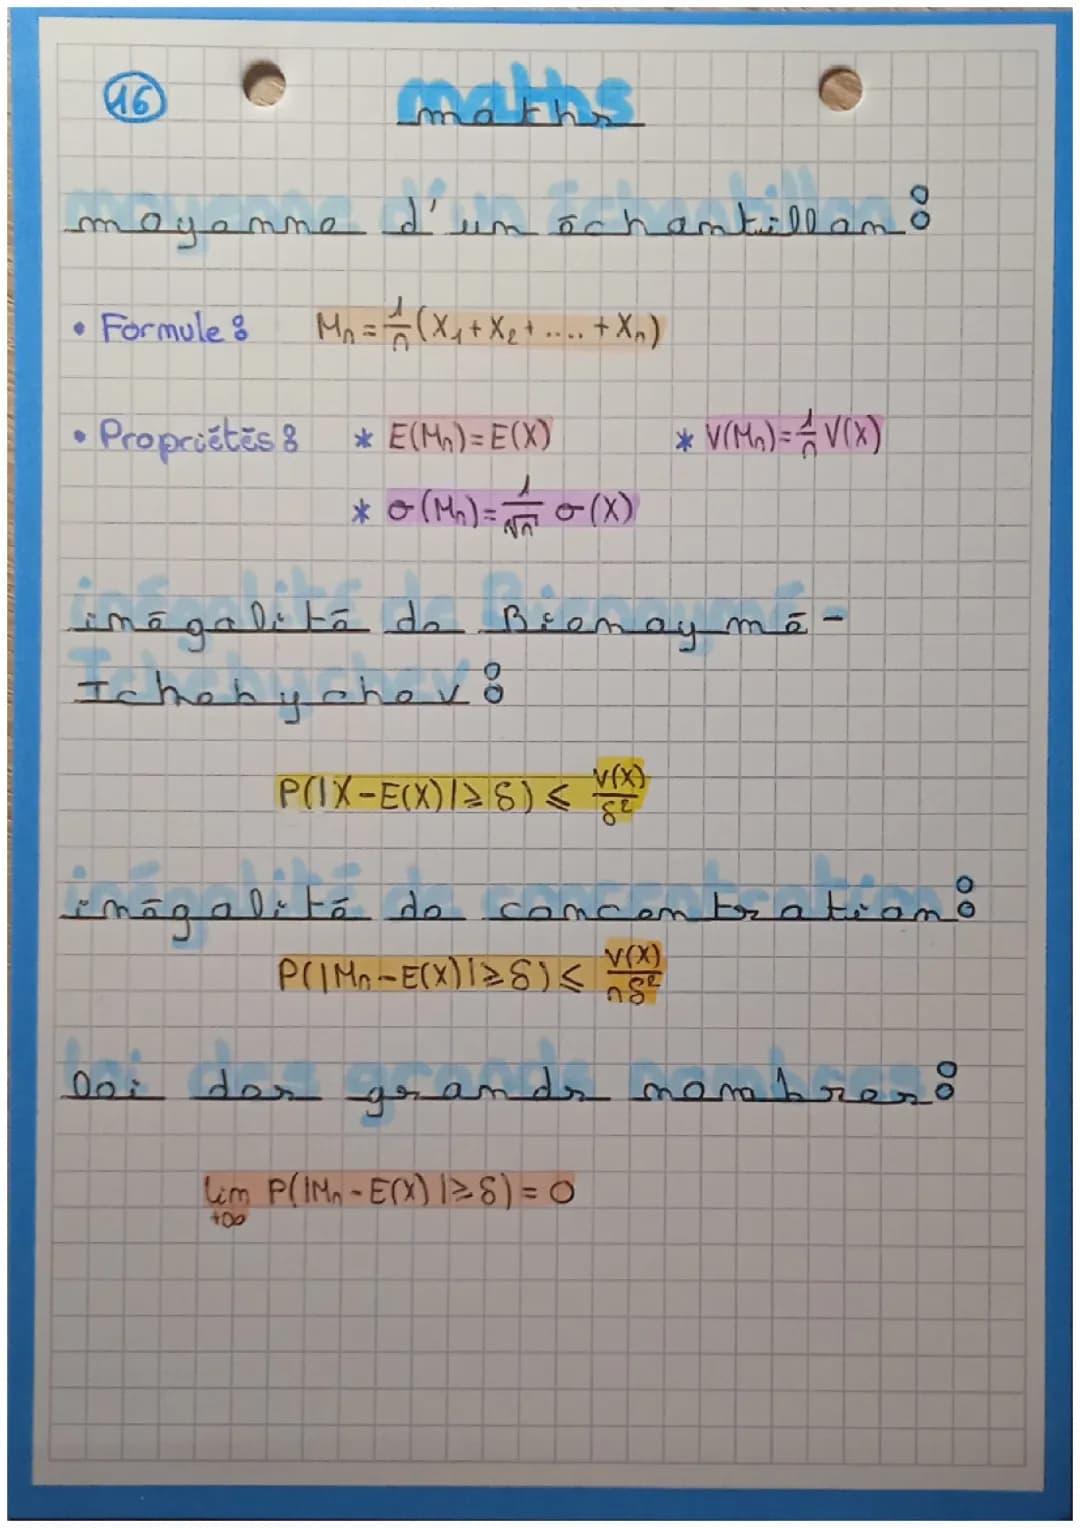 16
maths
moyenne d'un échantillon :
• Formule : Mₙ = 1/n (X₁ + X₂ + .... + Xₙ)
• Propriétés : * E(Mₙ) = E(X) * V(Mₙ) = 1/n V(X)
* σ(Mₙ) = 1/√n σ(X)
inégalité de Bienaymé-
Tchebychev :
P(|X - E(X)| ⩾ δ) ⩽ V(X)/δ²
inégalité de concentration :
P(|Mₙ - E(X)| ⩾ δ) ⩽ V(X)/nδ²
loi des grands nombres :
lim P(|Mₙ - E(X)| ⩾ δ) = 0
+∞